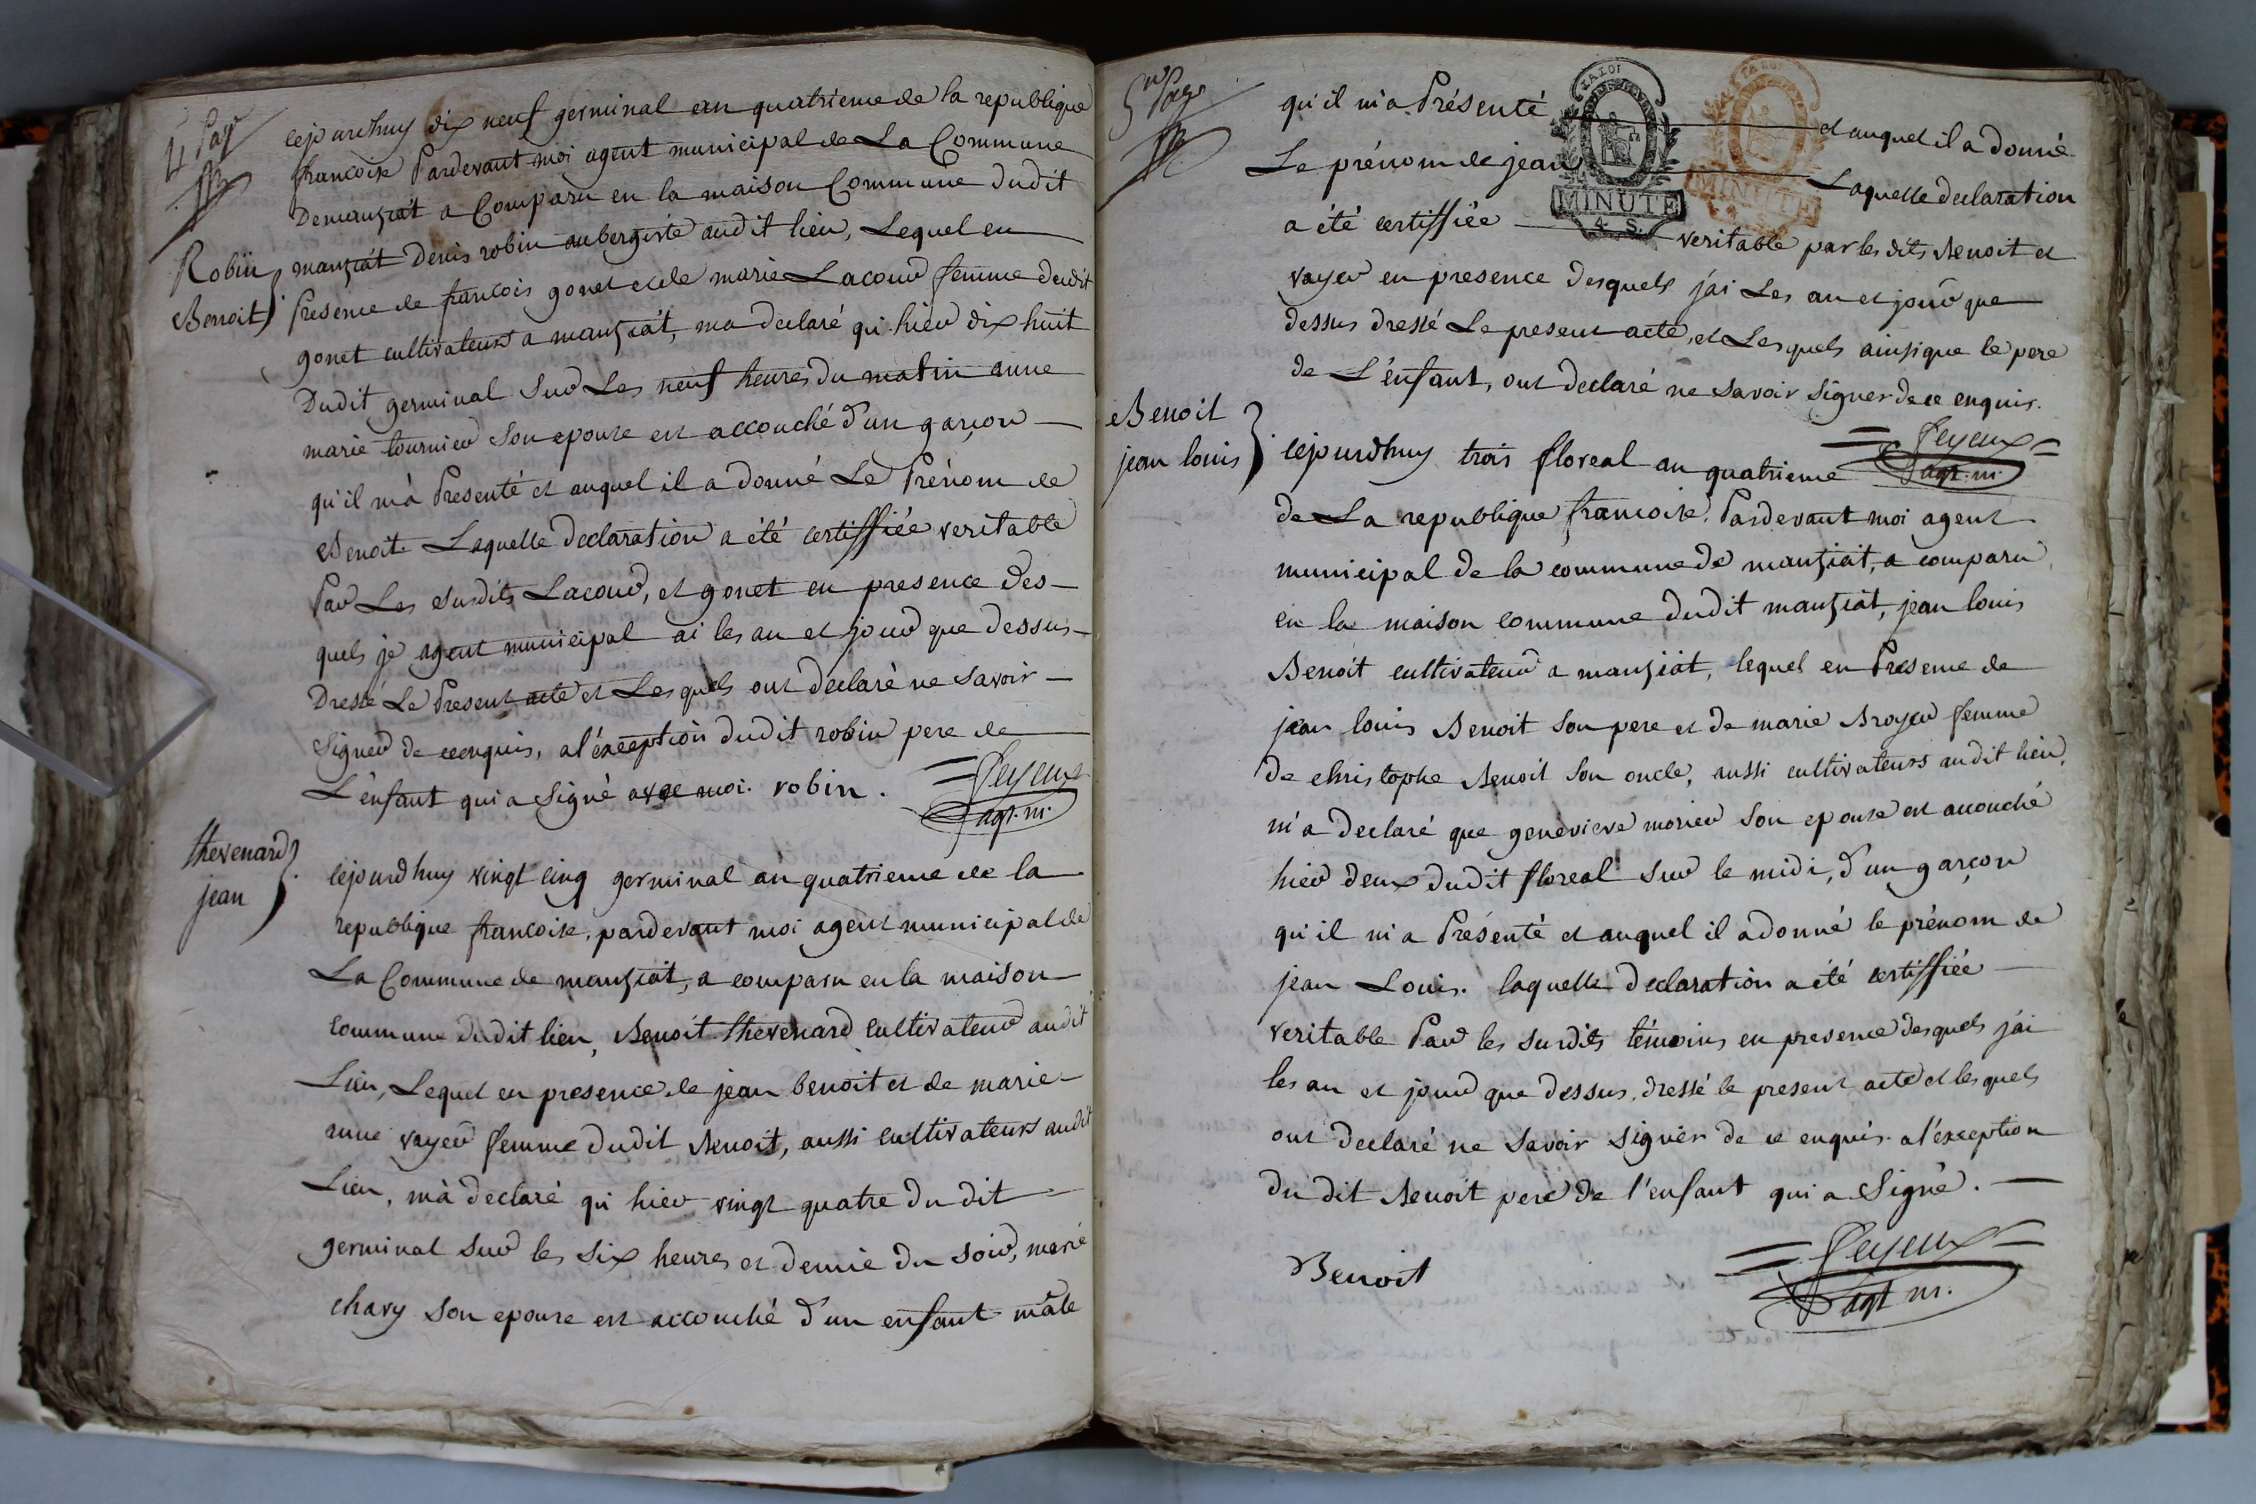 4e Page
cejourdhuy dix neuf germinal an quatrieme de la republique
francoise Pardevant moi agent municipal de La Commune
De manziat a Comparu en la maison Commune dudit
Robin
Benoit
manziat Denis robin aubergiste audit lieu, Lequel en
Presence de francois gonet et de marie Lacour femme dudit
gonet cultivateurs a manziat, ma declaré qu'hier dix huit
Dudit germinal Sur Les neuf heures du matin anne
marie tournier Son epouse est accouché d'un garcon
qu'il m'a Presenté et auquel il a donné Le Prénom de
Benoit. Laquelle declaration a été certiffiée veritable
Par Les Susdits Lacour, et gonet en presence des-
quels je agent municipal ai les an et jour que dessus
Dressé Le Present acte et Les quels ont declaré ne Savoir
Signer de ce enquis, a l'exception dudit robin pere de
L'enfant qui a Signé avec moi. robin.
feyeux
agt. m.
thevenard
jean
cejourdhuy vingt cinq germinal an quatrieme de la
republique francoise, pardevant moi agent municipal de
La Commune de manziat, a comparu en la maison
commune dudit lieu, Benoit thevenard cultivateur audit
Lieu, Lequel en presence de jean benoit et de marie
anne vayer femme dudit Benoit, aussi cultivateurs audit
Lieu, m'a declaré qu'hier vingt quatre du dit
germinal Sur les Six heures et demie du Soir, marie
chavy Son epouse est accouché d'un enfant mâle
5e Page
qu'il m'a Présenté et auquel il a donné
Le prénom de jean Laquelle declaration
a été certiffiée veritable par les dits Benoit et
vayer en presence desquels j'ai Les an et jour que
dessus dressé Le present acte, et Lesquels ainsi que le pere
de L'enfant, ont declaré ne Savoir Signer de ce enquis.
MINUTE
4. S.
MINUTE
feyeux
agt. m.
Benoit
jean louis
cejourdhuy trois floreal an quatrieme
de La republique francoise. Pardevant moi agent
municipal de la commune de manziat, a comparu
en la maison commune dudit manziat, jean louis
Benoit cultivateur a manziat, lequel en Presence de
jean louis Benoit Son pere et de marie Broyer femme
de christophe Benoit Son oncle, aussi cultivateurs audit lieu,
m'a declaré que genevieve morier Son epouse est accouché
hier deux dudit floreal Sur le midi, d'un garçon
qu'il m'a Présenté et auquel il a donné le prénom de
jean Louis. laquelle declaration a été certiffiée
veritable Par les Susdits témoins en presence desquels j'ai
les an et jour que dessus, dressé le present acte et lesquels
ont declaré ne Savoir Signer de ce enquis. a l'exception
du dit Benoit pere de l'enfant qui a Signé.
Benoit
feyeux
agt m.